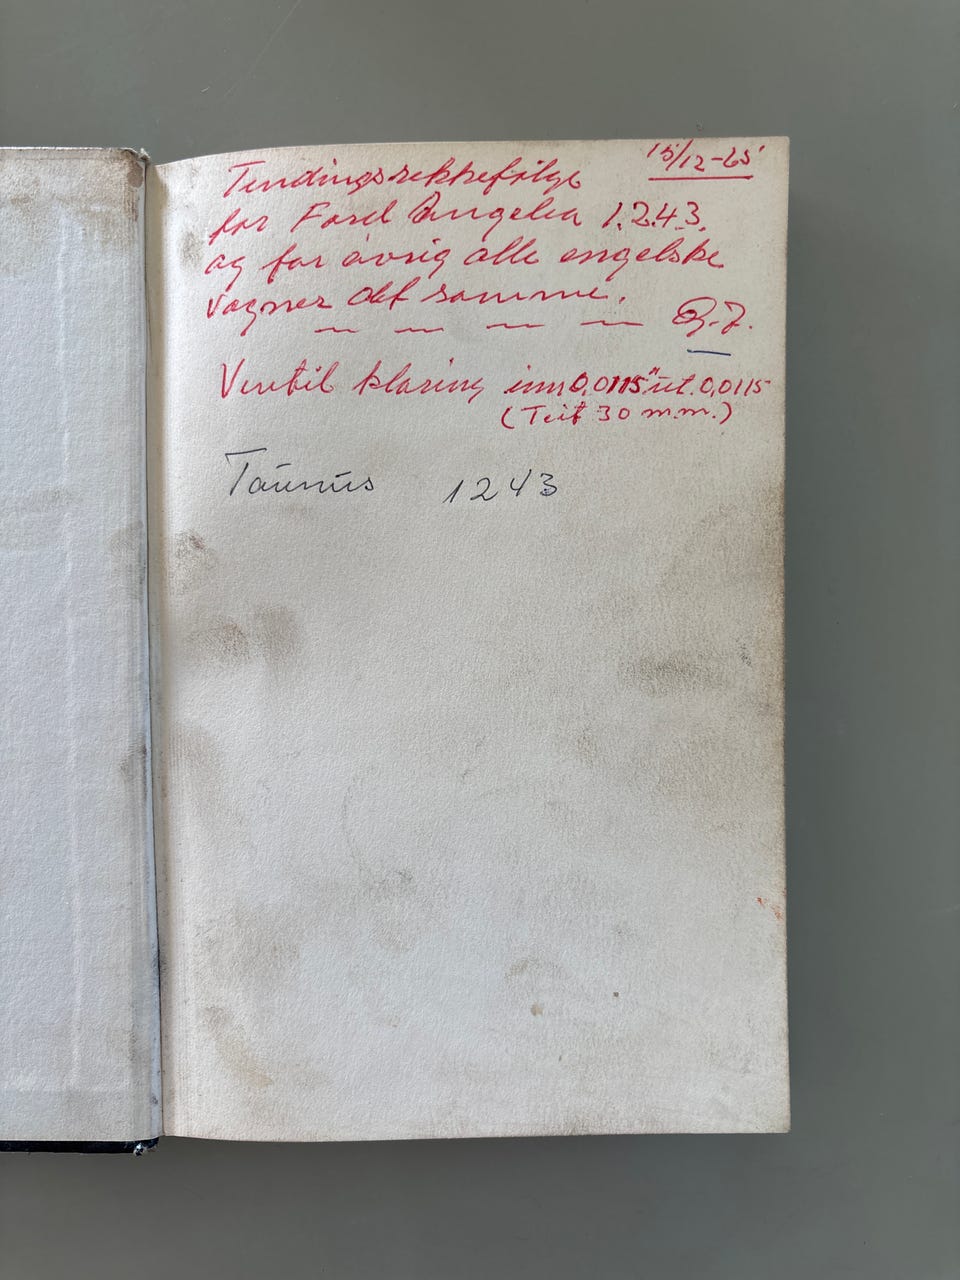 15/12-65
Tendingsrekkefølge
for Ford Angelia 1.2.4.3.
og for øvrig alle engelske
vogner det samme.
Ventil klaring inn 0,0115" ut. 0,0115
(Teit 30 m.m.)
Taunus 1243